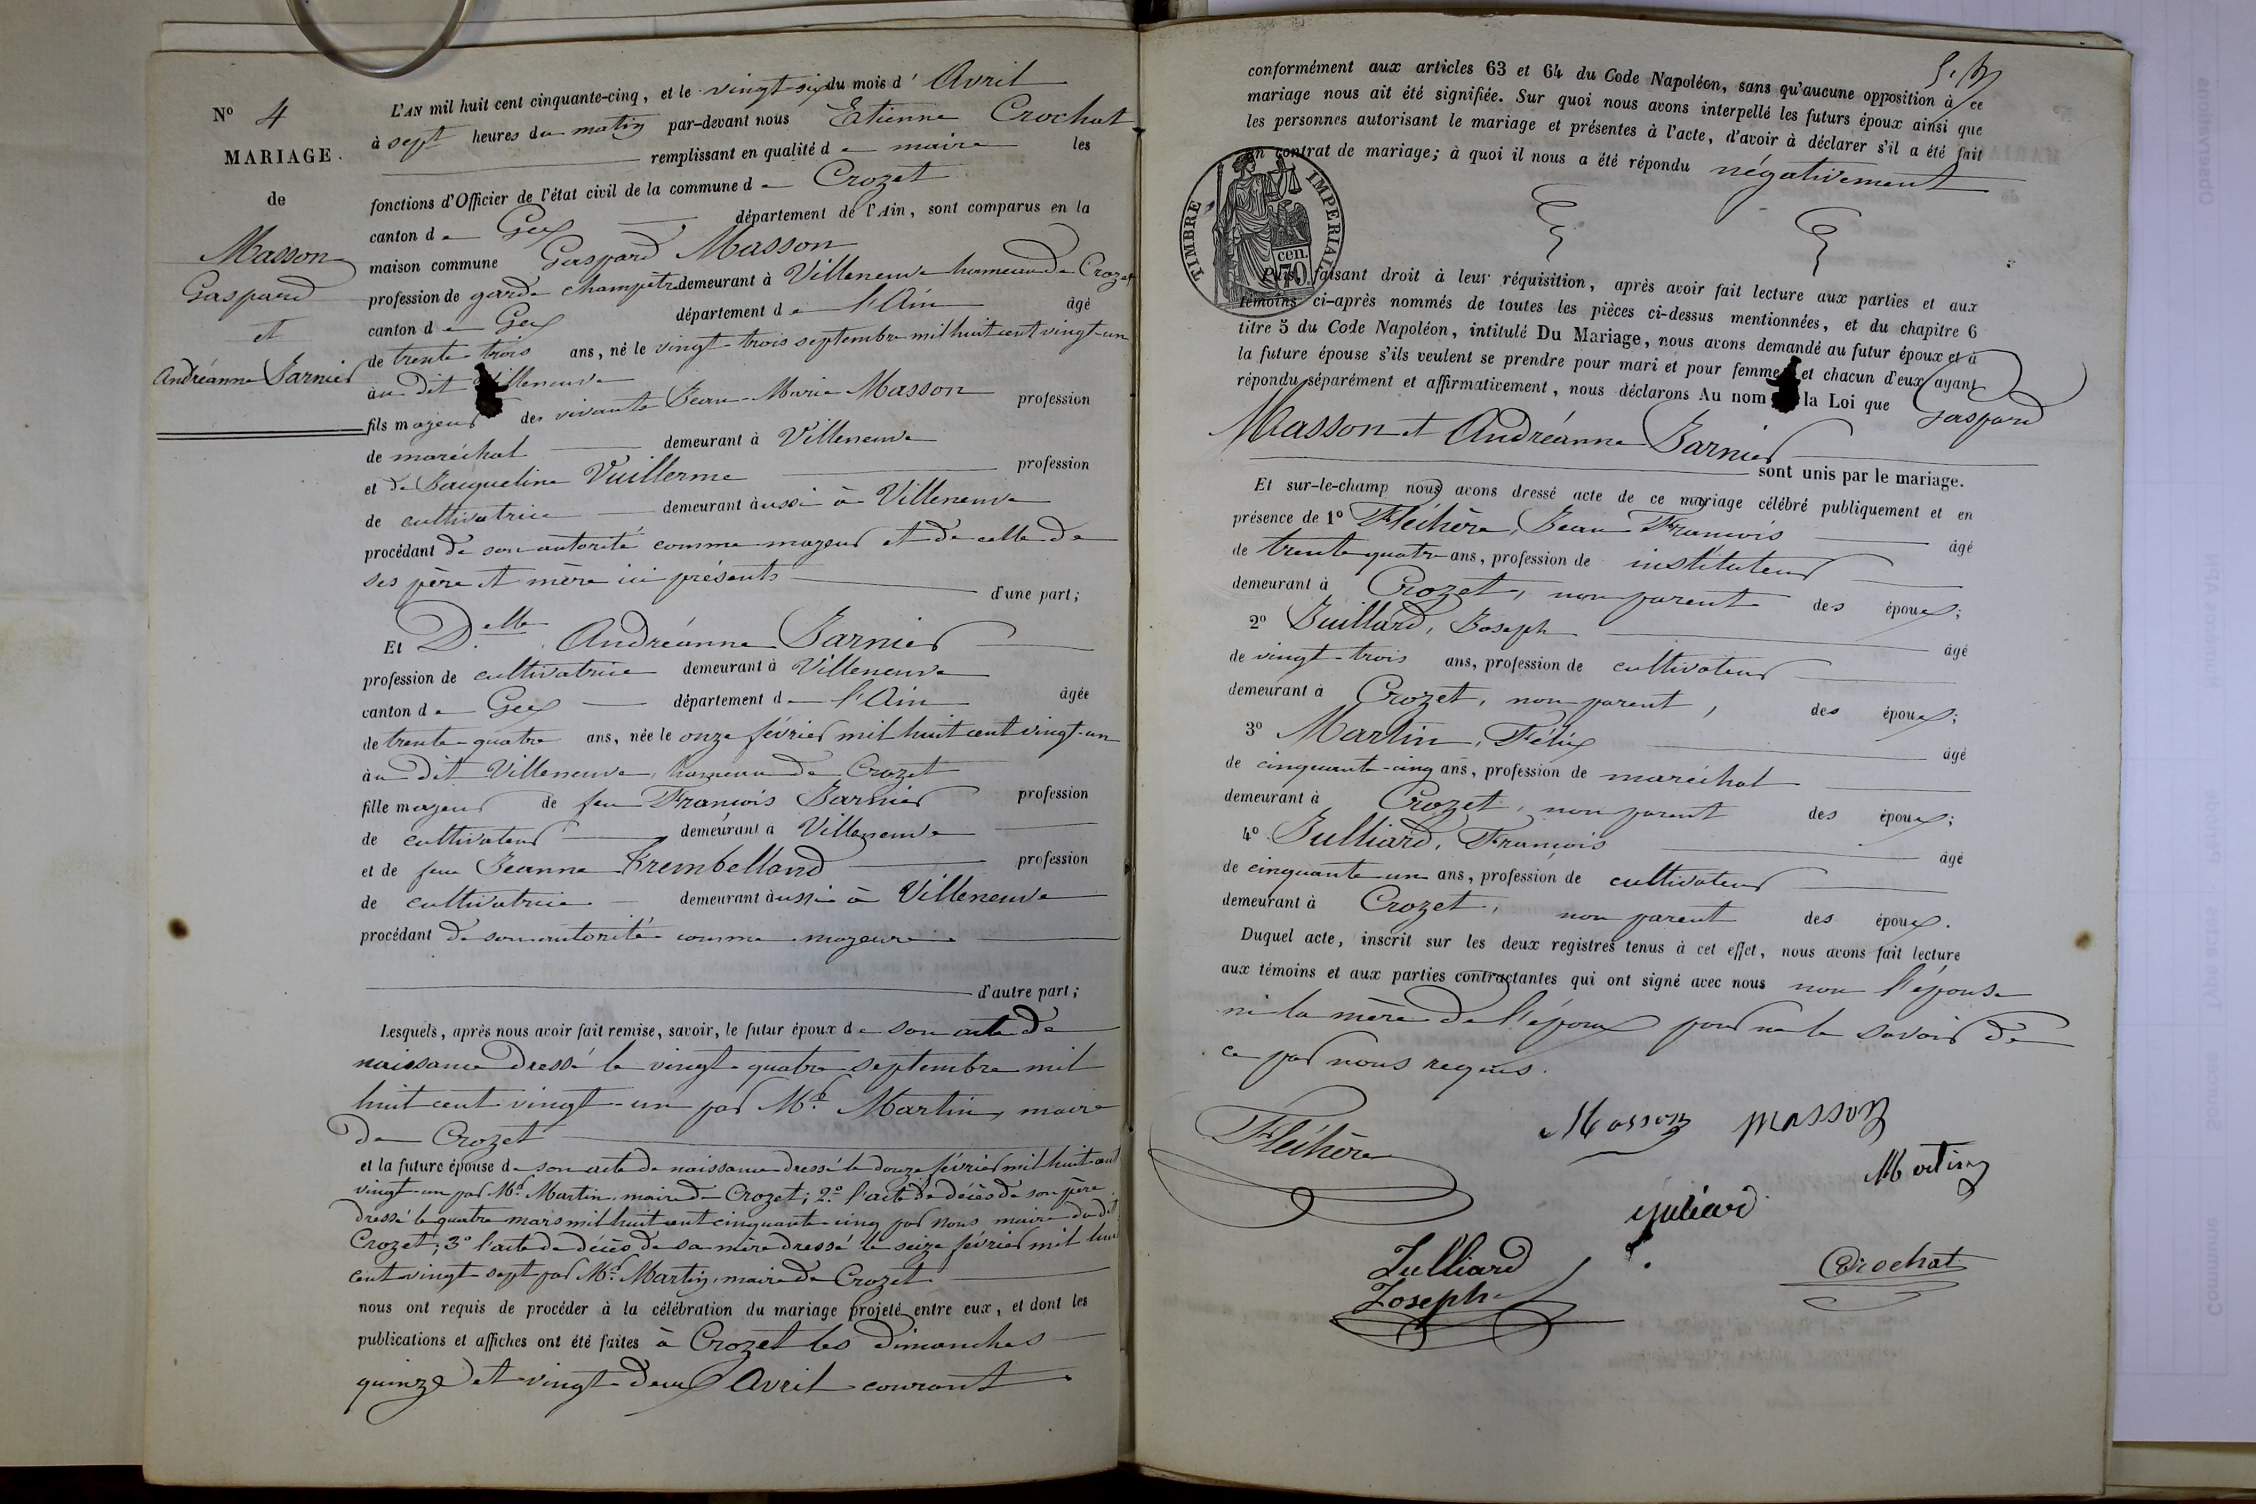 N° 4
MARIAGE.
de
Masson
Gaspard
et
Andréanne Barnier
L'AN mil huit cent cinquante-cinq, et le vingt-six du mois d' Avril
à sept heures du matin par-devant nous Etienne Crochat
remplissant en qualité de maire les
fonctions d'Officier de l'état civil de la commune de Crozet
canton de Gex département de l'Ain, sont comparus en la
maison commune Gaspard Masson
profession de garde champêtre demeurant à Villeneuve hameau de Crozet
canton de Gex département de l'Ain âgé
de trente trois ans, né le vingt-trois septembre mil huit cent vingt-un
au dit Villeneuve
fils majeur des vivants Jean-Marie Masson profession
de maréchal demeurant à Villeneuve
et de Jacqueline Vuillerme profession
de cultivatrice demeurant aussi à Villeneuve
procédant de son autorité comme majeur et de celle de
ses père et mère ici présents
d'une part;
Et Delle Andréanne Barnier
profession de cultivatrice demeurant à Villeneuve
canton de Gex département de l'Ain âgée
de trente-quatre ans, née le onze février mil huit cent vingt-un
au dit Villeneuve, hameau de Crozet
fille majeur de feu François Barnier profession
de cultivateur demeurant à Villeneuve
et de feue Jeanne Krembelland profession
de cultivatrice demeurant aussi à Villeneuve
procédant de son autorité comme majeure
d'autre part;
Lesquels, après nous avoir fait remise, savoir, le futur époux de son acte de
naissance dressé le vingt-quatre septembre mil
huit cent vingt-un par Mr Martin, maire
de Crozet
et la future épouse de son acte de naissance dressé le douze février mil huit cent
vingt-un par Mr Martin, maire de Crozet; 2° l'acte de décès de son père
dressé le quatre mars mil huit cent cinquante-cinq par nous maire du dit
Crozet; 3° l'acte de décès de sa mère dressé le seize février mil huit
cent vingt-sept par Mr Martin, maire de Crozet
nous ont requis de procéder à la célébration du mariage projeté entre eux, et dont les
publications et affiches ont été faites à Crozet les dimanches
quinze et vingt-deux Avril courant
conformément aux articles 63 et 64 du Code Napoléon, sans qu'aucune opposition à ce
mariage nous ait été signifiée. Sur quoi nous avons interpellé les futurs époux ainsi que
les personnes autorisant le mariage et présentes à l'acte, d'avoir à déclarer s'il a été fait
un contrat de mariage; à quoi il nous a été répondu négativement
TIMBRE IMPERIAL
70 cen.
Puis, faisant droit à leur réquisition, après avoir fait lecture aux parties et aux
témoins ci-après nommés de toutes les pièces ci-dessus mentionnées, et du chapitre 6
titre 5 du Code Napoléon, intitulé Du Mariage, nous avons demandé au futur époux et à
la future épouse s'ils veulent se prendre pour mari et pour femme et chacun d'eux ayant
répondu séparément et affirmativement, nous déclarons Au nom la Loi que Gaspard
Masson et Andréanne Barnier
sont unis par le mariage.
Et sur-le-champ nous avons dressé acte de ce mariage célébré publiquement et en
présence de 1° Fléchère, Jean François âgé
de trente quatre ans, profession de instituteur
demeurant à Crozet, non parent des époux;
2° Juillard, Joseph âgé
de vingt-trois ans, profession de cultivateur
demeurant à Crozet, non parent, des époux;
3° Martin, Félix âgé
de cinquante-cinq ans, profession de maréchal
demeurant à Crozet, non parent des époux;
4° Julliard, François âgé
de cinquante un ans, profession de cultivateur
demeurant à Crozet, non parent des époux.
Duquel acte, inscrit sur les deux registres tenus à cet effet, nous avons fait lecture
aux témoins et aux parties contractantes qui ont signé avec nous non l'épouse
ni la mère de l'époux pour ne le savoir de
ce par nous requis.
Fléchère Masson Masson
Martin
juliard
Julliard
Joseph
Crochat